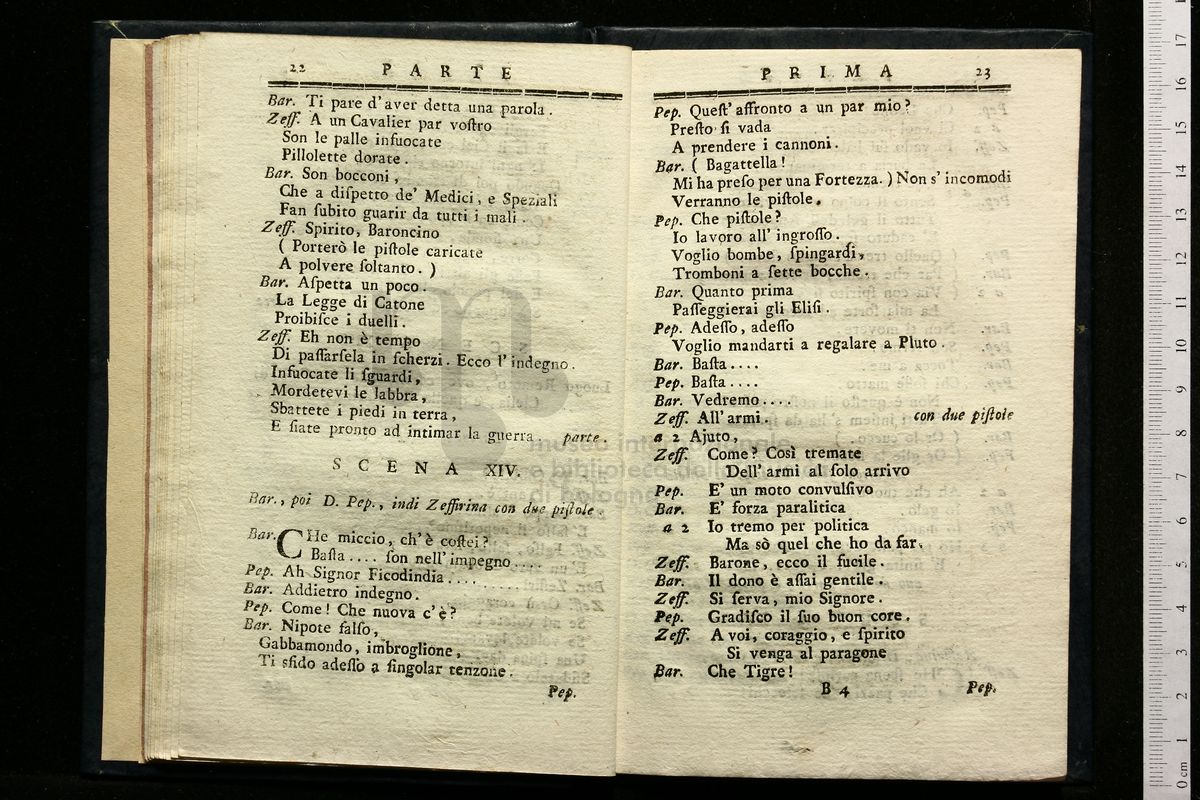 22 PARTE
Bar. Ti pare d'aver detta una parola.
Zeff. A un Cavalier par voſtro
Son le palle infuocate
Pillolette dorate.
Bar. Son bocconi,
Che a diſpetto de' Medici, e Speziali
Fan ſubito guarir da tutti i mali.
Zeff. Spirito, Baroncino
( Porterò le piſtole caricate
A polvere ſoltanto. )
Bar. Aſpetta un poco.
La Legge di Catone
Proibiſce i duelli.
Zeff. Eh non è tempo
Di paſſarſela in ſcherzi. Ecco l'indegno.
Infuocate li ſguardi,
Mordetevi le labbra,
Sbattete i piedi in terra,
E ſiate pronto ad intimar la guerra parte.
SCENA XIV.
Bar., poi D. Pep., indi Zeffirina con due piſtole.
Bar. CHe miccio, ch'è coſtei?
Baſta.... ſon nell'impegno
Pep. Ah Signor Ficodindia....
Bar. Addietro indegno.
Pep. Come! Che nuova c'è?
Bar. Nipote falſo,
Gabbamondo, imbroglione,
Ti sfido adeſſo a ſingolar tenzone.
Pep.
PRIMA 23
Pep. Queſt' affronto a un par mio?
Preſto ſi vada
A prendere i cannoni.
Bar. ( Bagattella!
Mi ha preſo per una Fortezza. ) Non s' incomodi
Verranno le piſtole.
Pep. Che piſtole?
Io lavoro all' ingroſſo.
Voglio bombe, ſpingardi,
Tromboni a ſette bocche.
Bar. Quanto prima
Paſſeggierai gli Eliſi.
Pep. Adeſſo, adeſſo
Voglio mandarti a regalare a Pluto.
Bar. Baſta....
Pep. Baſta....
Bar. Vedremo....
Zeff. All' armi. con due piſtole
a 2 Ajuto,
Zeff. Come? Così tremate
Dell' armi al ſolo arrivo
Pep. E' un moto convulſivo
Bar. E' forza paralitica
a 2 Io tremo per politica
Ma sò quel che ho da far.
Zeff. Barone, ecco il fucile.
Bar. Il dono è aſſai gentile.
Zeff. Si ſerva, mio Signore.
Pep. Gradiſco il ſuo buon core.
Zeff. A voi, coraggio, e ſpirito
Si venga al paragone
Bar. Che Tigre!
B 4 Pep.
museo internazionale
e biblioteca della musica
di bologna
0 cm 1 2 3 4 5 6 7 8 9 10 11 12 13 14 15 16 17